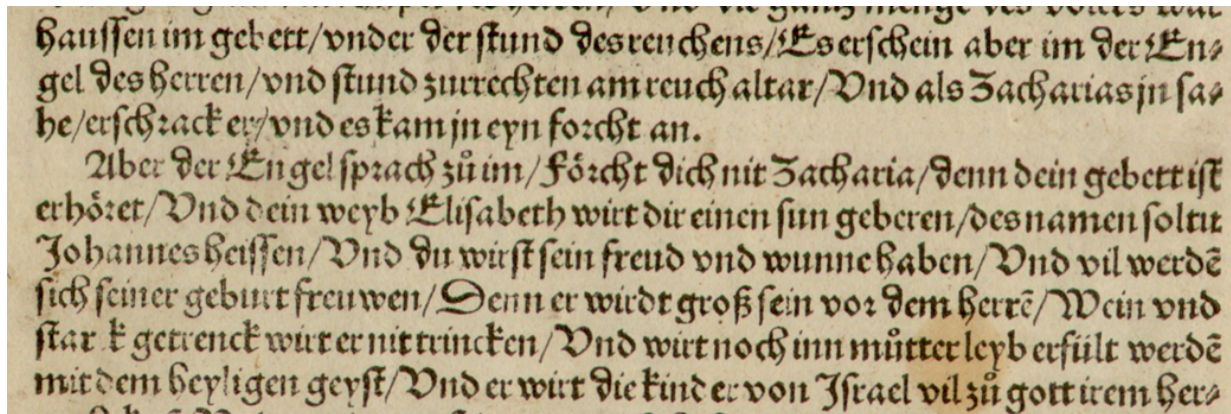 vnd die gantz menge des volcks war
haussen im gebett/vnder der stund des reuchens/Es erschein aber im der En⸗
gel des herren/vnd stund zurrechten am reuch altar/Vnd als Zacharias jn sa⸗
he/erschrack er/vnd es kam jn eyn forcht an.
Aber der Engel sprach zů im/Förcht dich nit Zacharia/denn dein gebett ist
erhöret/Vnd dein weyb Elisabeth wirt dir einen sun geberen/des namen soltu
Johannes heissen/Vnd du wirst sein freud vnd wunne haben/Vnd vil werdẽ
sich seiner geburt freuwen/Denn er wirdt groß sein vor dem herrẽ/Wein vnd
starck getrenck wirt er nit trincken/Vnd wirt noch inn můtter leyb erfült werdẽ
mit dem heyligen geyst/Vnd er wirt die kinder von Israel vil zů gott irem her⸗